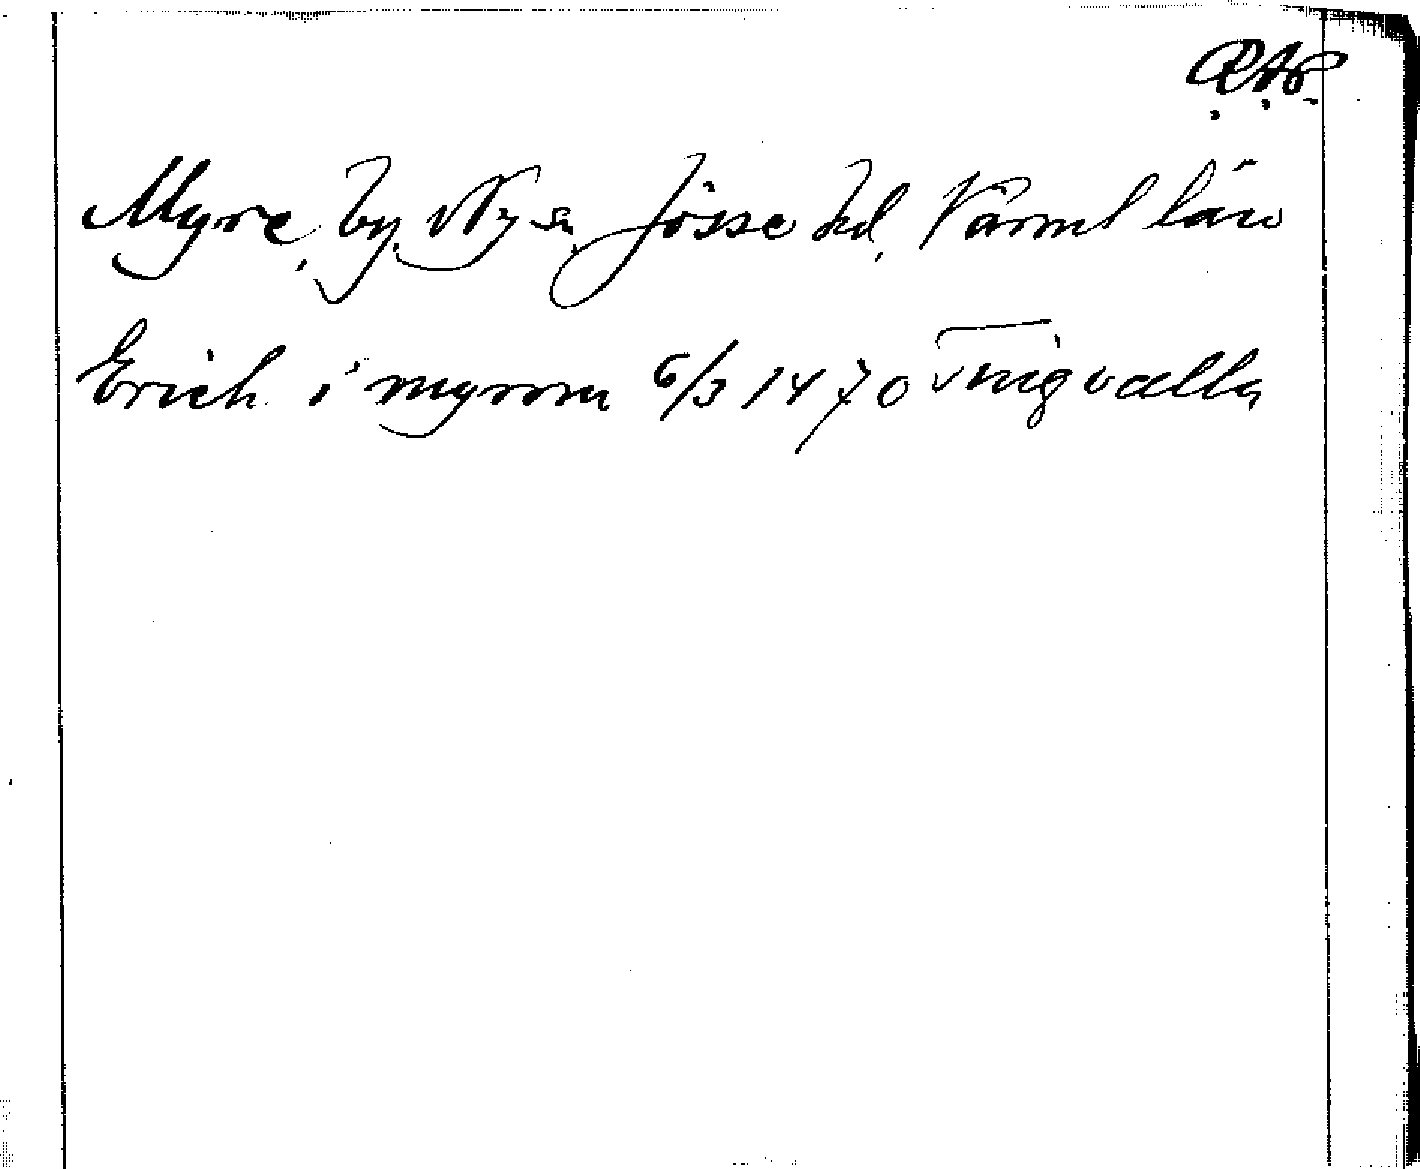 R.A.P.
Myre, by, Ny sn, Jösse hd, Värml län
Erich i myrom 6/3 1470 Tingvalla